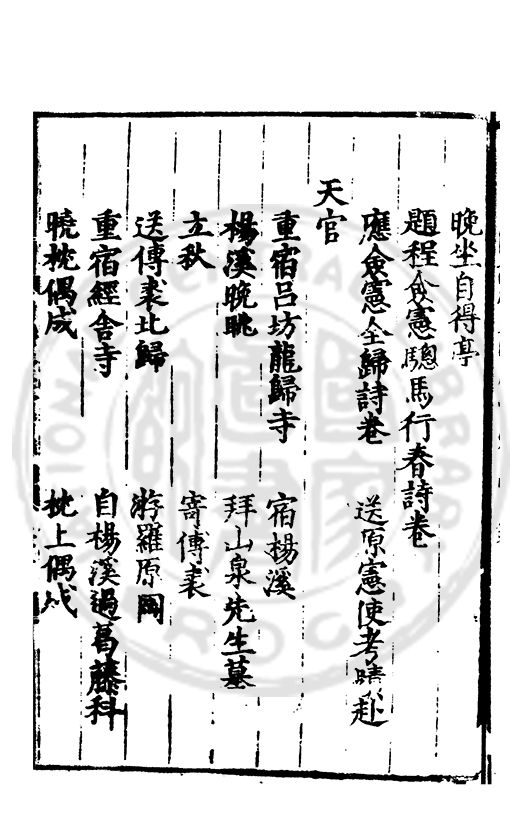 晚坐自得亭
題程僉憲驄馬行春詩卷
應僉憲全歸詩卷　送原憲使考績赴
天官
重宿呂坊龍歸寺　宿楊溪
楊溪晚眺　拜山泉先生墓
立秋　寄傅裘
送傅裘北歸　游羅原閣
重宿經舍寺　自楊溪過葛藤科
曉枕偶成　枕上偶成